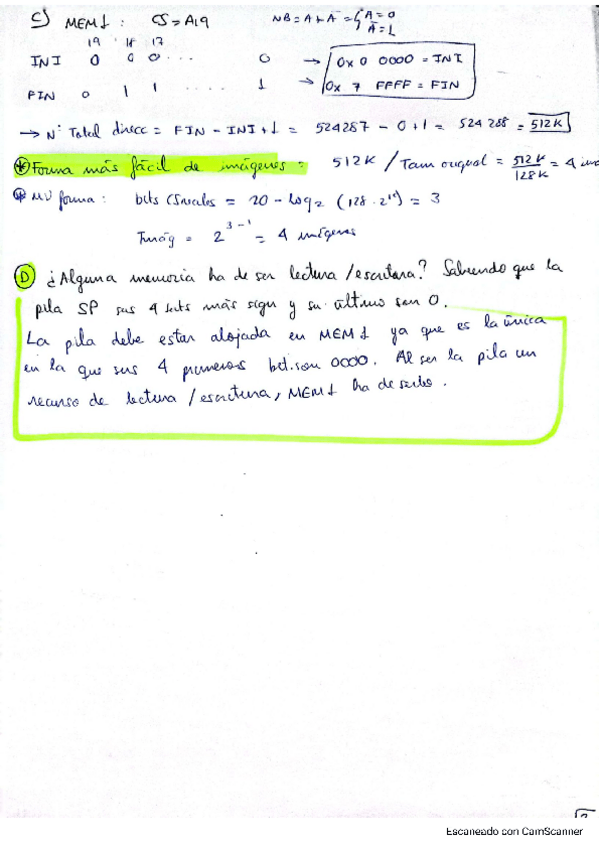 c) MEM1: CS = A19 NB = A + A̅ = { A = 0
A̅ = 1
19 18 17
INI 0 0 0 .... 0 → 0x0 0000 = INI
FIN 0 1 1 .... 1 → 0x 7 FFFF = FIN
→ Nº Total direcc = FIN - INI + 1 = 524287 - 0 + 1 = 524288 = 512K
* Forma más fácil de imágenes = 512K / Tam original = 512K / 128K = 4
* MV forma: bits CSincales = 20 - Log2 (128 · 2^10) = 3
Timág = 2^3-1 = 4 imágenes
D ¿Alguna memoria ha de ser lectura/escritura? Sabiendo que la
pila SP sus 4 bits más sign y su último son 0.
La pila debe estar alojada en MEM1 ya que es la única
en la que sus 4 primeros bit son 0000. Al ser la pila un
recurso de lectura/escritura, MEM1 ha de serlo.
Escaneado con CamScanner